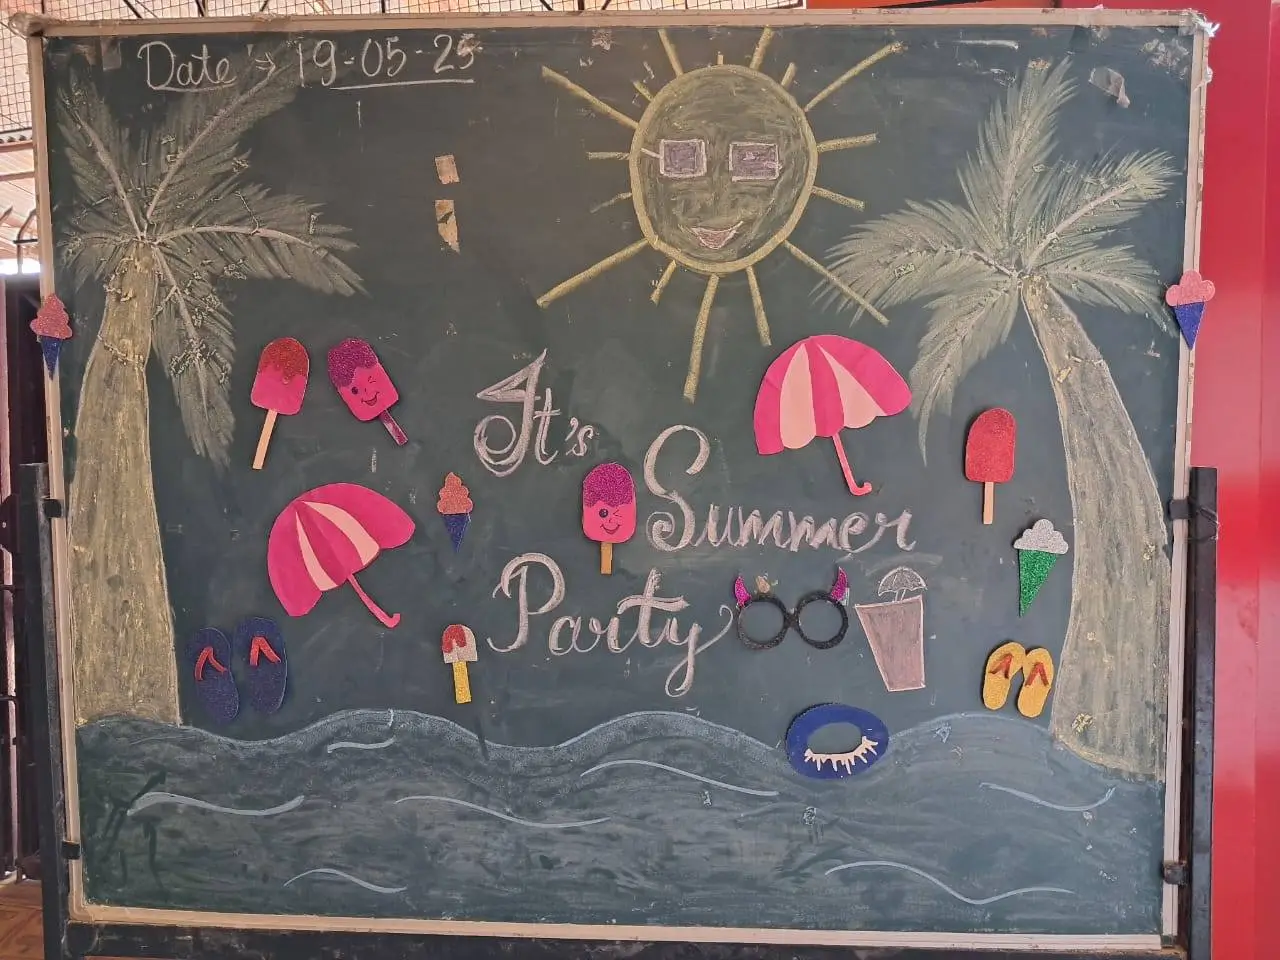 Date → 19-05-25
It's
Summer
Party